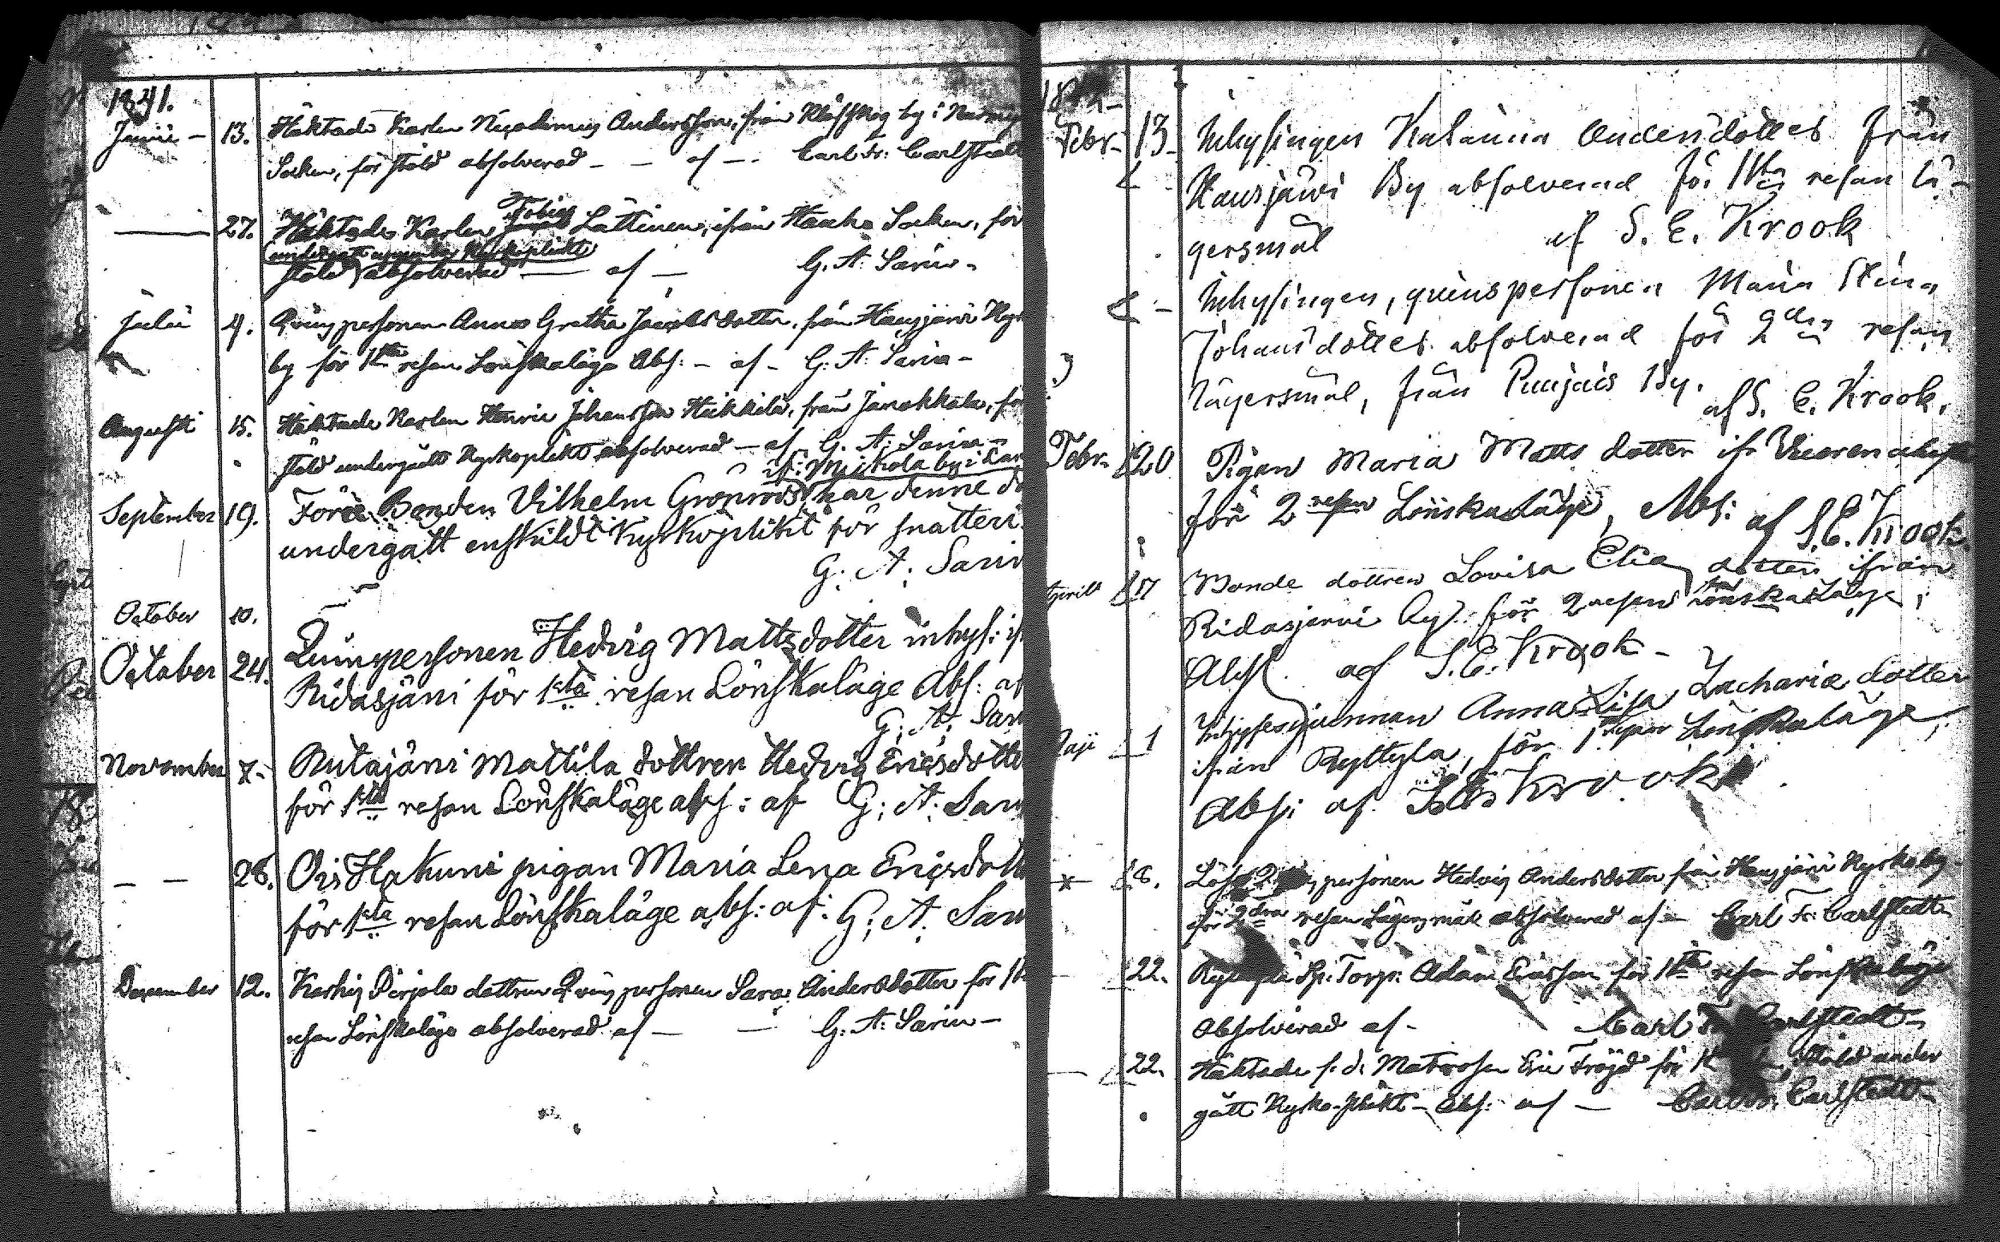 1841.
Junii - 13. Häktade Karlen Nicodemus Andersson, från Klåfskog by i Nurmij
Socken, för stöld absolverad - - af - - Carl Fr: Carlstedt
27. Häktade Karlen Tobias Lättinen, ifrån Hauho Socken, för
undergått uppenbar Kyrkoplikt
stöld absolverad - af - G. A. Sarin -
Julii 4. Qvinspersonen Anna Gretha Jacobsdotter, från Hausjärvi Kyrk
by för 1sta resan Lönskaläge Abs: - af - G. A. Sarin -
Augusti 15. Häktade Karlen Henric Johansson Heikkilä, från Janakkala, för
stöld undergått Kyrkoplikt absolverad - af G. A. Sarin -
if: Mickola by i Lau
September 19. Förre Bonden Vilhelm Grönroos har denne d
undergått enskildt Kyrkoplikt för snatteri.
G. A. Sarin
October 10.
October 24. Quinspersonen Hedvig Mattsdotter inhys: if
Ridasjärvi för 1sta resan Lönskaläge Abs: af
G. A. Sarin
November 7. Rutajärvi Mattila dottren Hedvig Ericsdotter
för 1sta resan Lönskaläge abs: af G. A. Sarin
- - 28. Ois Hakuni pigan Maria Lena Ericsdotter
för 1sta resan Lönskaläge abs: af: G. A. Sarin
December 12. Karhis Pirjola dottren Qvinspersonen Sara Andersdotter för 1sta
resan Lönskaläge absolverad af - - G. A. Sarin -
Febr. 13. Inhysingen Katarina Andersdotter från
Hausjärvi By absolverad för 1sta resan lä-
gersmål af S. E. Krook
Inhysingen, quinspersonen Maria Stina
Johansdotter absolverad för 2dra resan
lägersmål, från Puujais By. af S. E. Krook.
Febr. 20 Pigan Maria Matts dotter ifr
för 2 resan Lönskaläge, Abs: af S. E. Krook.
Aprill 17 Bonde dottren Lovisa Elia dotter ifrån
Ridasjervi By. för 2 resan Lönskaläge,
Abs. af S. E. Krook -
Maji 1 Inhyses qvinnan Anna Lisa Zacharie dotter
ifrån Ryttyla, för 1 resan Lönskaläge,
Abs: af S. E. Krook
8. Lösa personen Hedvig Andersdotter från Hausjärvi Kyrkoby
för 2dra resan Lägersmål absolverad af - Carl Fr: Carlstedt
22. Sp: Torp: Adam Ericsson för 1sta resan Lönskaläge
Absolverad af - Carl Carlstedt -
22. Häktade f. d. Matrosen Eric Fröjd för stöld under
gått Kyrko-plikt - Abs: af - Carl Fr. Carlstedt -